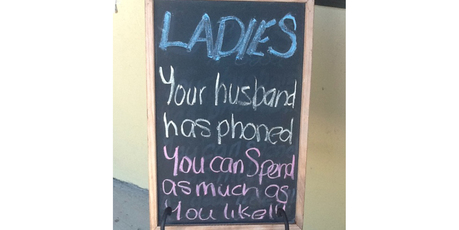 LADIES
Your husband
has phoned
You can Spend
as much as
You like!!